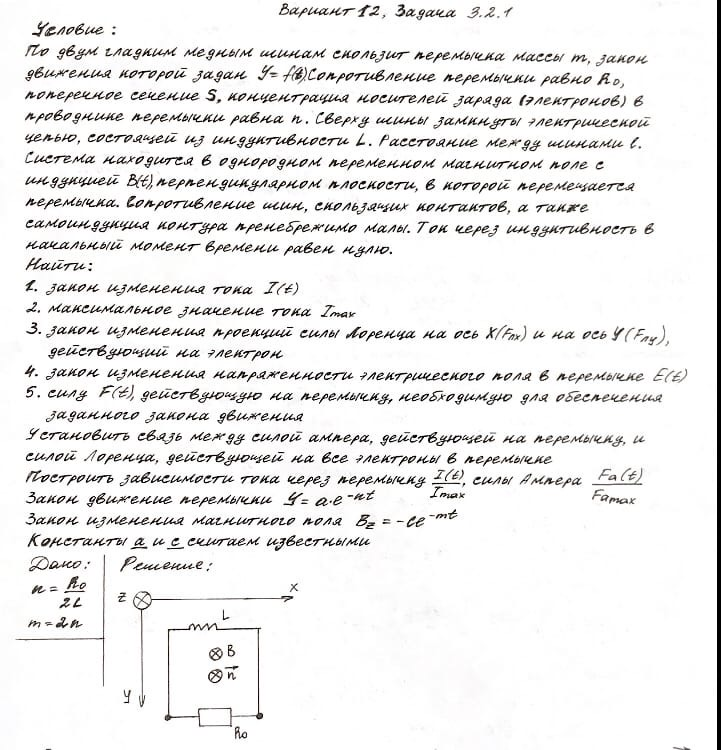 Вариант 12, Задача 3.2.1
Условие:
По двум гладким медным шинам скользит перемычка массы m, закон
движения которой задан Y= f(t). Сопротивление перемычки равно R₀,
поперечное сечение S, концентрация носителей заряда (электронов) в
проводнике перемычки равна n. Сверху шины замкнуты электрической
цепью, состоящей из индуктивности L. Расстояние между шинами l.
Система находится в однородном переменном магнитном поле с
индукцией B(t), перпендикулярном плоскости, в которой перемещается
перемычка. Сопротивление шин, скользящих контактов, а также
самоиндукция контура пренебрежимо малы. Ток через индуктивность в
начальный момент времени равен нулю.
Найти:
1. закон изменения тока I(t)
2. максимальное значение тока Imax
3. закон изменения проекций силы Лоренца на ось X(Fлх) и на ось Y(Fлу),
действующий на электрон
4. закон изменения напряженности электрического поля в перемычке E(t)
5. силу F(t), действующую на перемычку, необходимую для обеспечения
заданного закона движения
Установить связь между силой ампера, действующей на перемычку, и
силой Лоренца, действующей на все электроны в перемычке
Построить зависимости тока через перемычку I(t)/Imax, силы Ампера Fa(t)/Famax
Закон движение перемычки Y = a·e^-nt
Закон изменения магнитного поля Bz = -ce^-mt
Константы a и c считаем известными
Дано: Решение:
n = R₀/2L
m = 2n
Z X
L
B
n
Y
R₀